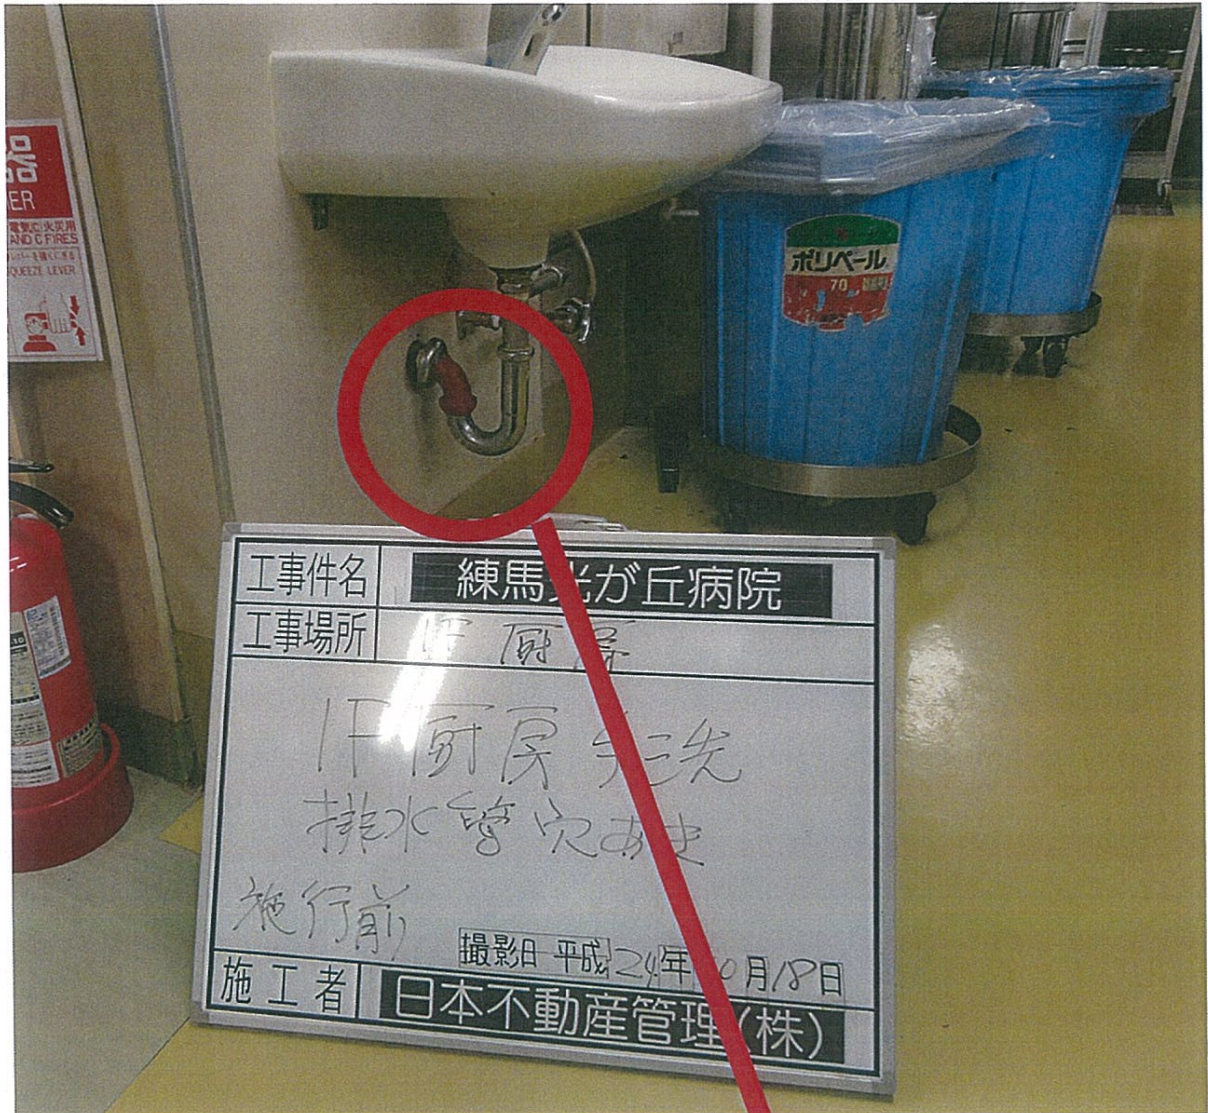 器
ER
電気(C)火災用
AND C FIRES
レバーを強くにぎる
SQUEEZE LEVER
ポリペール
70
工事件名 練馬光が丘病院
工事場所 1F 厨房
1F 厨房 手洗
排水管穴あき
施行前
撮影日 平成24年10月18日
施工者 日本不動産管理(株)